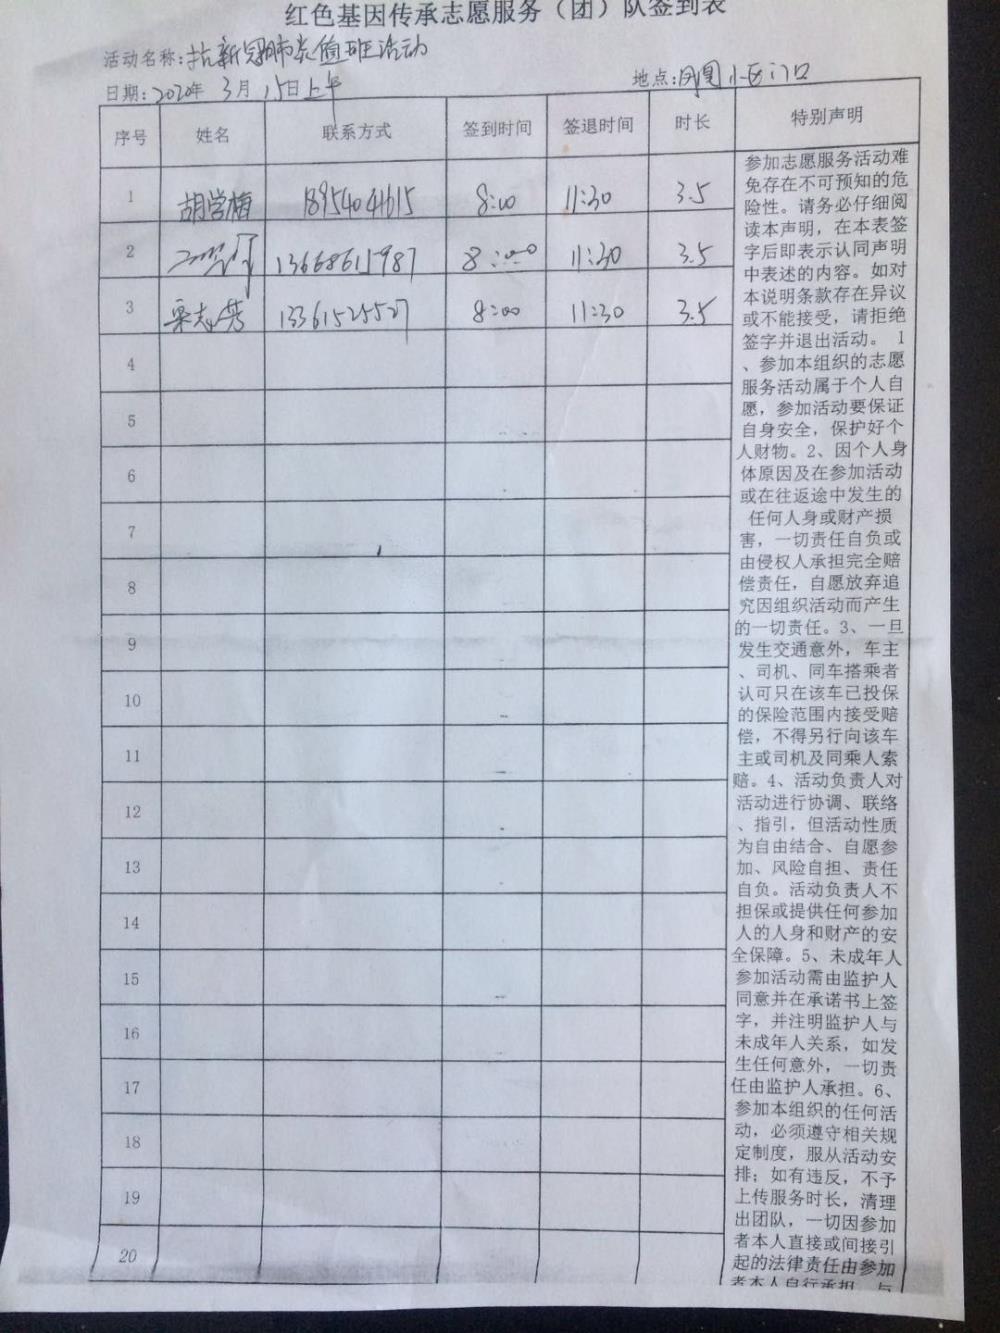 红色基因传承志愿服务（团）队签到表
活动名称：抗新冠肺炎值班活动
日期：2020年 3月 15日上午 地点：凤凰小区门口
序号 姓名 联系方式 签到时间 签退时间 时长 特别声明
1 胡学梅 18954041615 8:00 11:30 3.5
2 13668615987 8:00 11:30 3.5
3 栗志秀 13361525527 8:00 11:30 3.5
4
5
6
7
8
9
10
11
12
13
14
15
16
17
18
19
20
参加志愿服务活动难
免存在不可预知的危
险性。请务必仔细阅
读本声明，在本表签
字后即表示认同声明
中表述的内容。如对
本说明条款存在异议
或不能接受，请拒绝
签字并退出活动。 1
、参加本组织的志愿
服务活动属于个人自
愿，参加活动要保证
自身安全，保护好个
人财物。2、因个人身
体原因及在参加活动
或在往返途中发生的
任何人身或财产损
害，一切责任自负或
由侵权人承担完全赔
偿责任，自愿放弃追
究因组织活动而产生
的一切责任。3、一旦
发生交通意外，车主
、司机、同车搭乘者
认可只在该车已投保
的保险范围内接受赔
偿，不得另行向该车
主或司机及同乘人索
赔。4、活动负责人对
活动进行协调、联络
、指引，但活动性质
为自由结合、自愿参
加、风险自担、责任
自负。活动负责人不
担保或提供任何参加
人的人身和财产的安
全保障。5、未成年人
参加活动需由监护人
同意并在承诺书上签
字，并注明监护人与
未成年人关系，如发
生任何意外，一切责
任由监护人承担。6、
参加本组织的任何活
动，必须遵守相关规
定制度，服从活动安
排；如有违反，不予
上传服务时长，清理
出团队，一切因参加
者本人直接或间接引
起的法律责任由参加
者本人自行承担，与